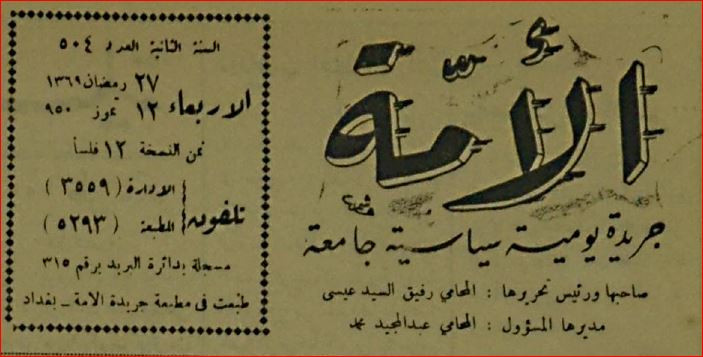 الأمة
جريدة يومية سياسية جامعة
صاحبها ورئيس تحريرها : المحامي رفيق السيد عيسى
مديرها المسؤول : المحامي عبدالمجيد محمد
السنة الثانية العدد ٥٠٤
٢٧ رمضان ١٣٦٩
الاربعاء ١٢ تموز ٩٥٠
ثمن النسخة ١٢ فلساً
تلفون الادارة ( ٣٥٥٩ )
المطبعة ( ٥٢٩٣ )
مسجلة بدائرة البريد برقم ٣١٥
طبعت في مطبعة جريدة الامة - بغداد